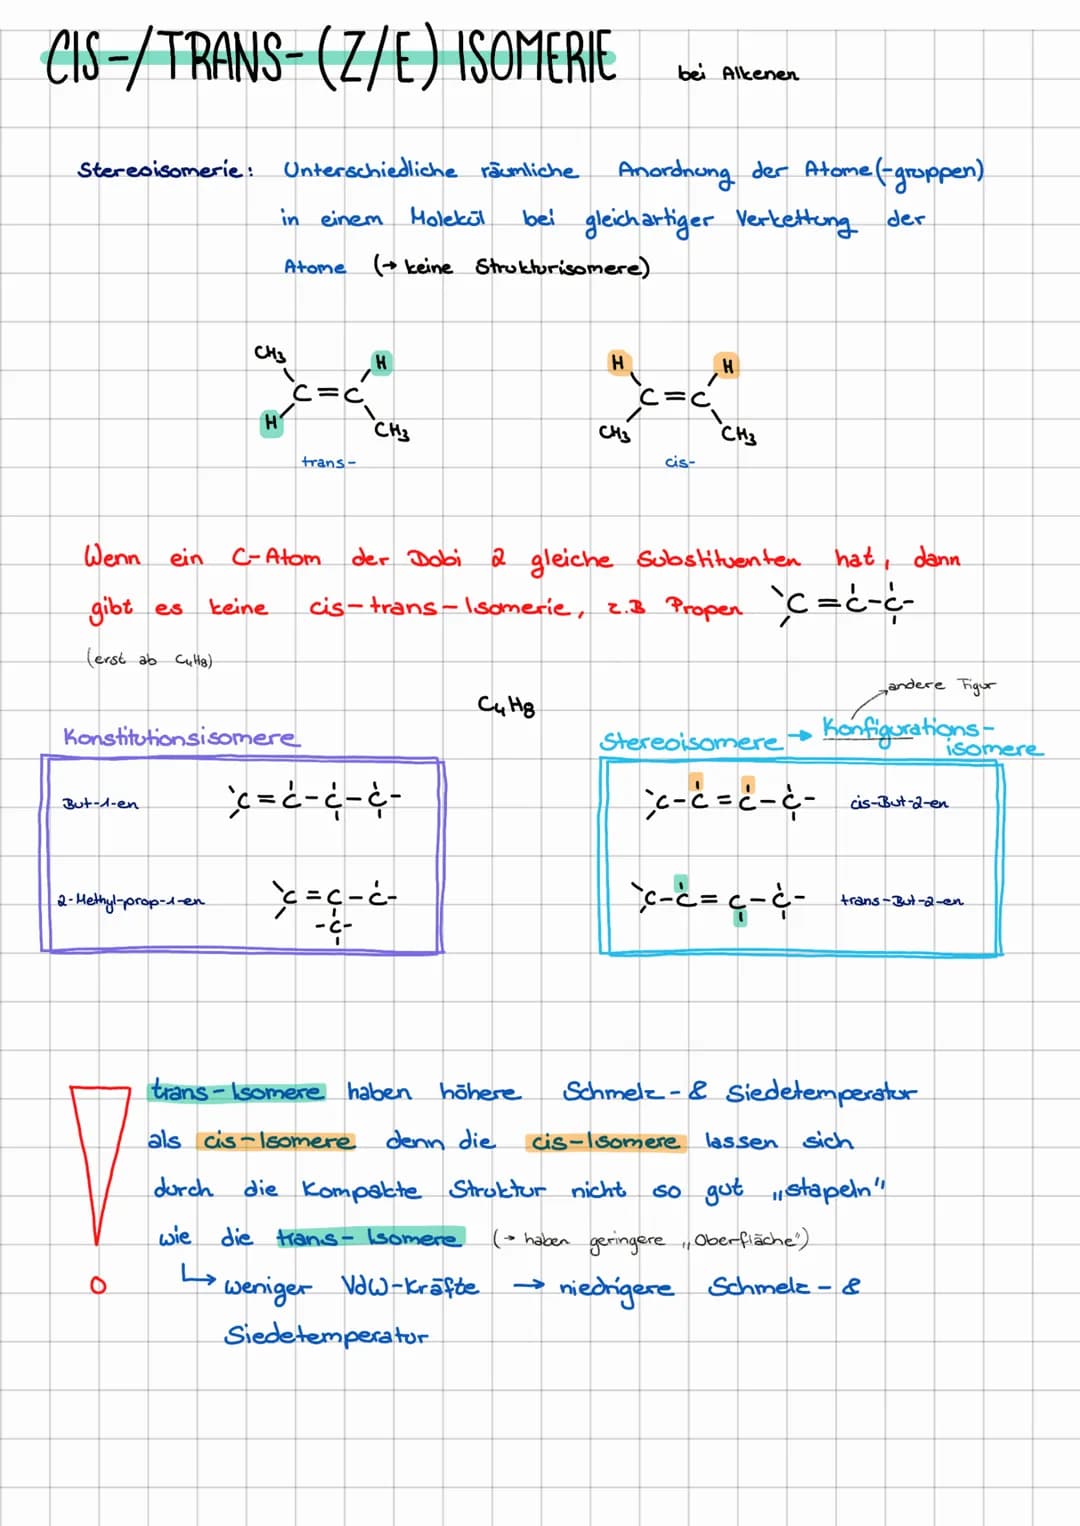 CIS-/TRANS-(Z/E) ISOMERIE bei Alkenen
Stereoisomerie: Unterschiedliche räumliche Anordnung der Atome(-gruppen)
in einem Molekül bei gleichartiger Verkettung der
Atome (→ keine Strukturisomere)
CH3 H
C=C
H CH3
trans-
H H
C=C
CH3 CH3
cis-
Wenn ein C-Atom der Dobi 2 gleiche Substituenten hat, dann
gibt es keine cis-trans-Isomerie, z.B Propen C=C-C-
(erst ab C4H8)
C4H8
Konstitutionsisomere
But-1-en C=C-C-C-
2-Methyl-prop-1-en C=C-C-
-C-
andere Figur
Stereoisomere → Konfigurations-
isomere
C-C=C-C- cis-But-2-en
C-C=C-C- trans-But-2-en
trans-Isomere haben höhere Schmelz- & Siedetemperatur
als cis-Isomere denn die cis-Isomere lassen sich
durch die kompakte Struktur nicht so gut „stapeln"
wie die trans-Isomere (→ haben geringere „Oberfläche")
↳ weniger VdW-Kräfte → niedrigere Schmelz- &
Siedetemperatur